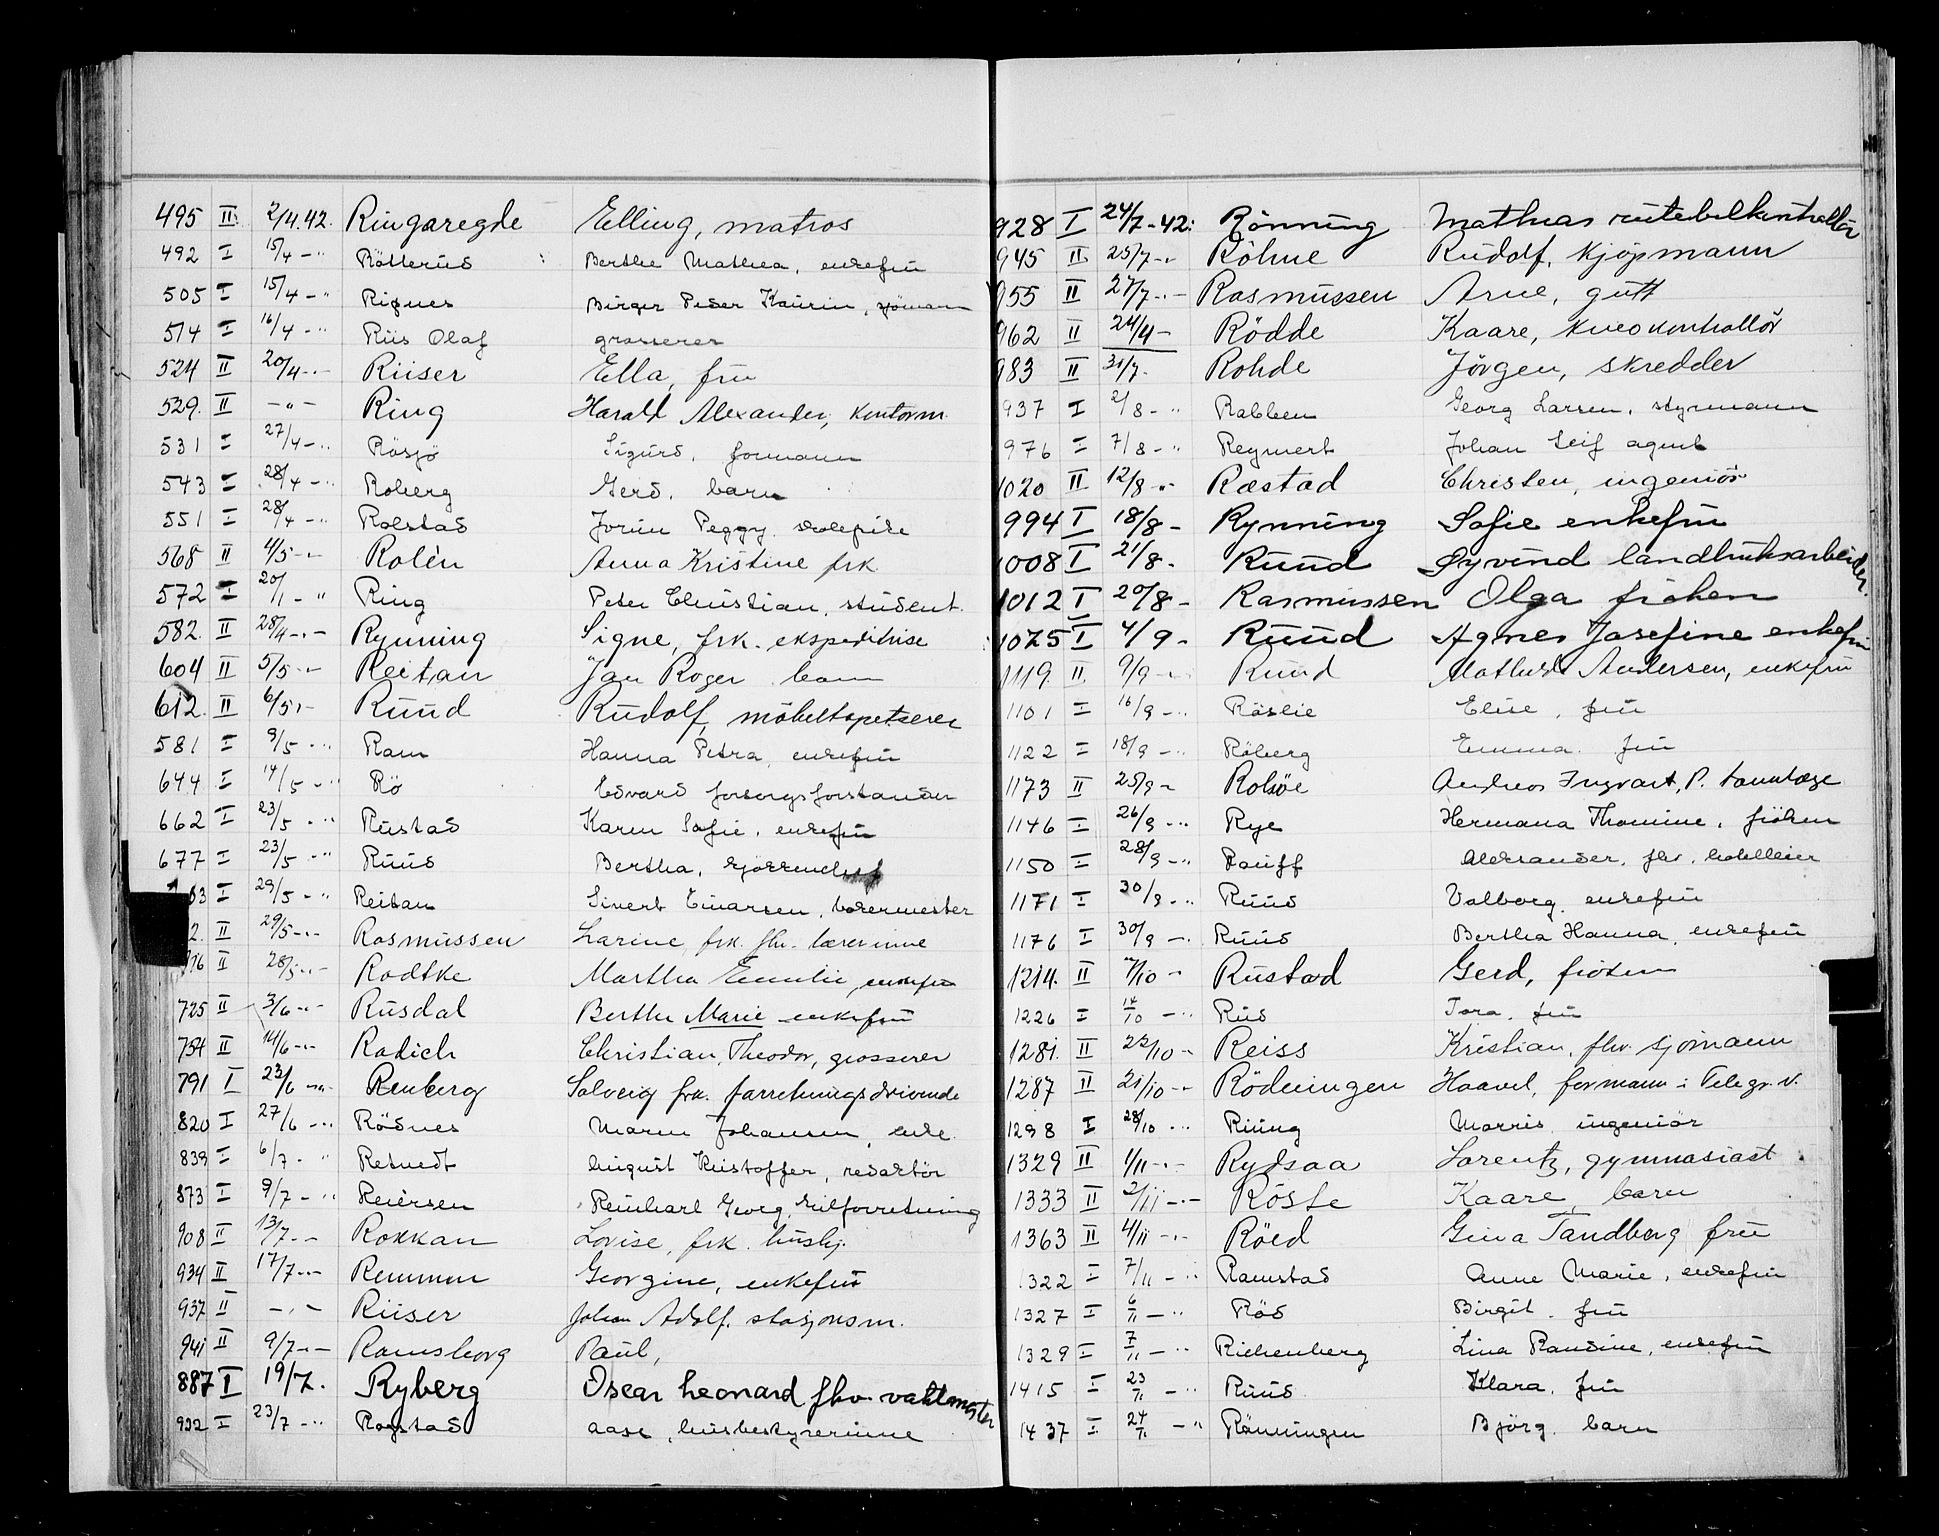 495 II 2/4.42. Ringaregde Elling, matros
492 I 15/4 -"- Rötterud Berthe Mathea, enkefru
505 I 15/4 -"- Rignes Birger Peder Kaurin, sjömann
514 I 16/4 -"- Riis Olaf grosserer
524 II 20/4 -"- Riiser Ella, fru
529. II -"- Ring Harald Alexander, kontorm.
531 I 27/4 -"- Rösjö Sigurd, formann
543 I 28/4 -"- Roberg Gerd, barn
551 I 28/4 -"- Rolstad Jorun Peggy skolepike
568 II 4/5 -"- Rolén Anna Kristine frk
572 I 20/1 -"- Ring Peter Christian, student.
582. II 28/4 -"- Rynning Signe, frk. ekspeditrise
604 II 5/5 -"- Reitan Jan Roger barn
612. II 6/5 -"- Ruud Rudolf, möbeltapetserer
581 I 9/5 -"- Ram Hanna Petra, enkefru
644 I 14/5 -"- Rö Edvard forsorgsforstander
662 I 23/5 -"- Rustad Karen Sofie, enkefru
677 I 23/5 -"- Ruud Bertha,
03 I 29/5 -"- Reitan Sivert Einarsen, bakermester
2. II 29/5 -"- Rasmussen Larine, frk. fhv. lærerinne
16 II 28/5 -"- Radtke Martha Emilie, enkefru
725 II 3/6 -"- Rusdal Berthe Marie enkefru
754 II 14/6 -"- Radich Christian, Theodor, grosserer
791 I 23/6 -"- Renberg Solveig frk. forretningsdrivende
820 I 27/6 -"- Rödnes Maren Johansen, enke.
839 I 6/7 -"- Retvedt August Kristoffer, redaktör
873 I 9/7 -"- Reiersen Reinhart Georg,
908 II 13/7 -"- Rokkan Lovise, frk. hushj.
934 II 17/7 -"- Remmen Georgine, enkefru
937 II -"- Riiser Johan Adolf, stasjonsm.
941 II 9/7 -"- Ramsborg Paul,
887 I 19/7. Ryberg Oscar Leonard fhv. vaktmester
922 I 23/7 -"- Rogstad Aase, husbestyrerinne
928 I 24/7 - 42: Rönning Mathias rutebilkontrollör
945 II 25/7 -"- Röhne Rudolf, kjöpmann
955 II 27/7 -"- Rasmussen Arne, gutt
962 II 24/4 - Rödde Kaare, kinokontrollör
983 II 31/7. Rohde Jörgen, skredder
937 I 2/8 -"- Rabben Georg Larsen, styrmann
976 I 7/8 -"- Reymert Johan Leif agent
1020 II 12/8 -"- Ræstad Christen, ingeniör
994 I 18/8 - Rynning Sofie enkefru
1008 I 21/8. Ruud Øyvind landbruksarbeider.
1012 I 20/8 - Rasmussen Olga fröken
1075 I 4/9 - Ruud Agnes Josefine enkefru
1119. II. 9/9 -"- Ruud Mathilde Andersen, enkefru
1101 I 16/9 -"- Röslie Elise, fru
1122 I 18/9 -"- Röberg Emma. fru
1173 II 25/9 -"- Andreas Ingvart, P. tannlæge
1146 I 26/9 -"- Rye Hermana Thomine, fröken
1150 I 28/9 -"- Rauff Aleksander, fhv. hotelleier
1171 I 30/9 -"- Ruud Valborg, enkefru
1176 I 30/9 -"- Ruud Bertha Hanna, enkefru
1214. II 7/10 -"- Rustad Gerd, fröken
1226 I 14/10 -"- Rud Tora, fru
1281. II 22/10 - Reiss Kristian, fhv. sjömann
1287 II 21/10 -"- Rödningen Haavel, formann i Telegr. v.
1298 I 28/10 -"- Riing Morris ingeniör
1329 II 1/11 -"- Rydsaa Lorentz, gymnasiast
1333 II 2/11 -"- Röste Kaare, barn
1363 II 4/11 -"- Röed Gina Tandberg fru
1322 I 7/11 -"- Ramstad Anne Marie, enkefru
1327 I 6/11 -"- Röd Birgit. fru
1329 I 7/11 -"- Richenberg Lina Randine, enkefru
1415 I 23/11 -"- Ruud. Klara, fru
1437 I 24/11 -"- Rönningen Björg. barn